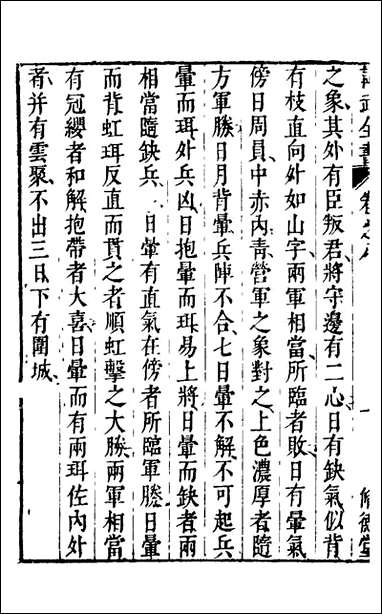 武全書 卷之八 一 脩德堂
之象其外有臣叛君將守邊有二心日有缺氣似背
有枝直向外如山字兩軍相當所臨者敗日有暈氣
傍日周員中赤內青營軍之象對之上色濃厚者隨
方軍勝日月背暈兵陣不合七日暈不解不可起兵
暈而珥外兵凶日抱暈而珥易上將日暈而缺者兩
相當隨缺兵 日暈有直氣在傍者所臨軍勝日暈
而背虹珥反直而貫之者順虹擊之大勝兩軍相當
有冠纓者和解抱帶者大喜日暈而有兩珥佐內外
者并有雲聚不出三日下有圍城